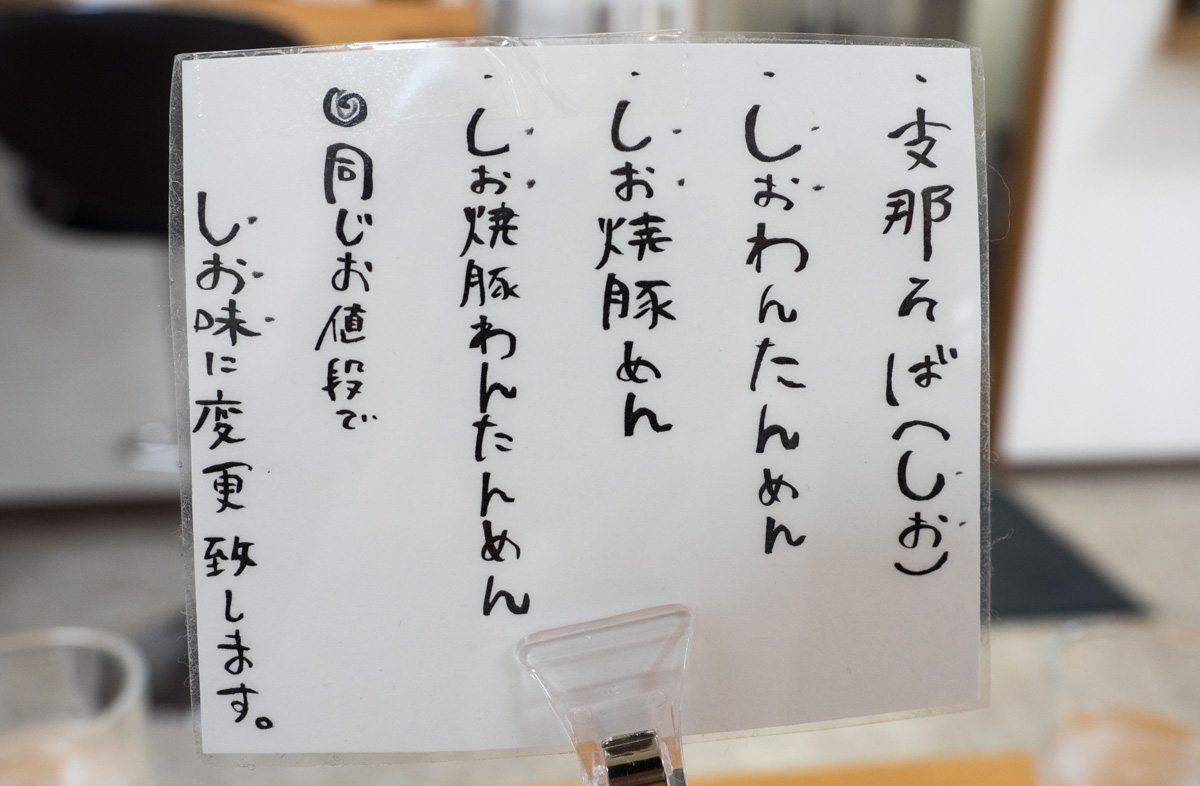 ・支那そば(しお)
・しおわんたんめん
・しお焼豚めん
・しお焼豚わんたんめん
◎同じお値段で
しお味に変更致します。